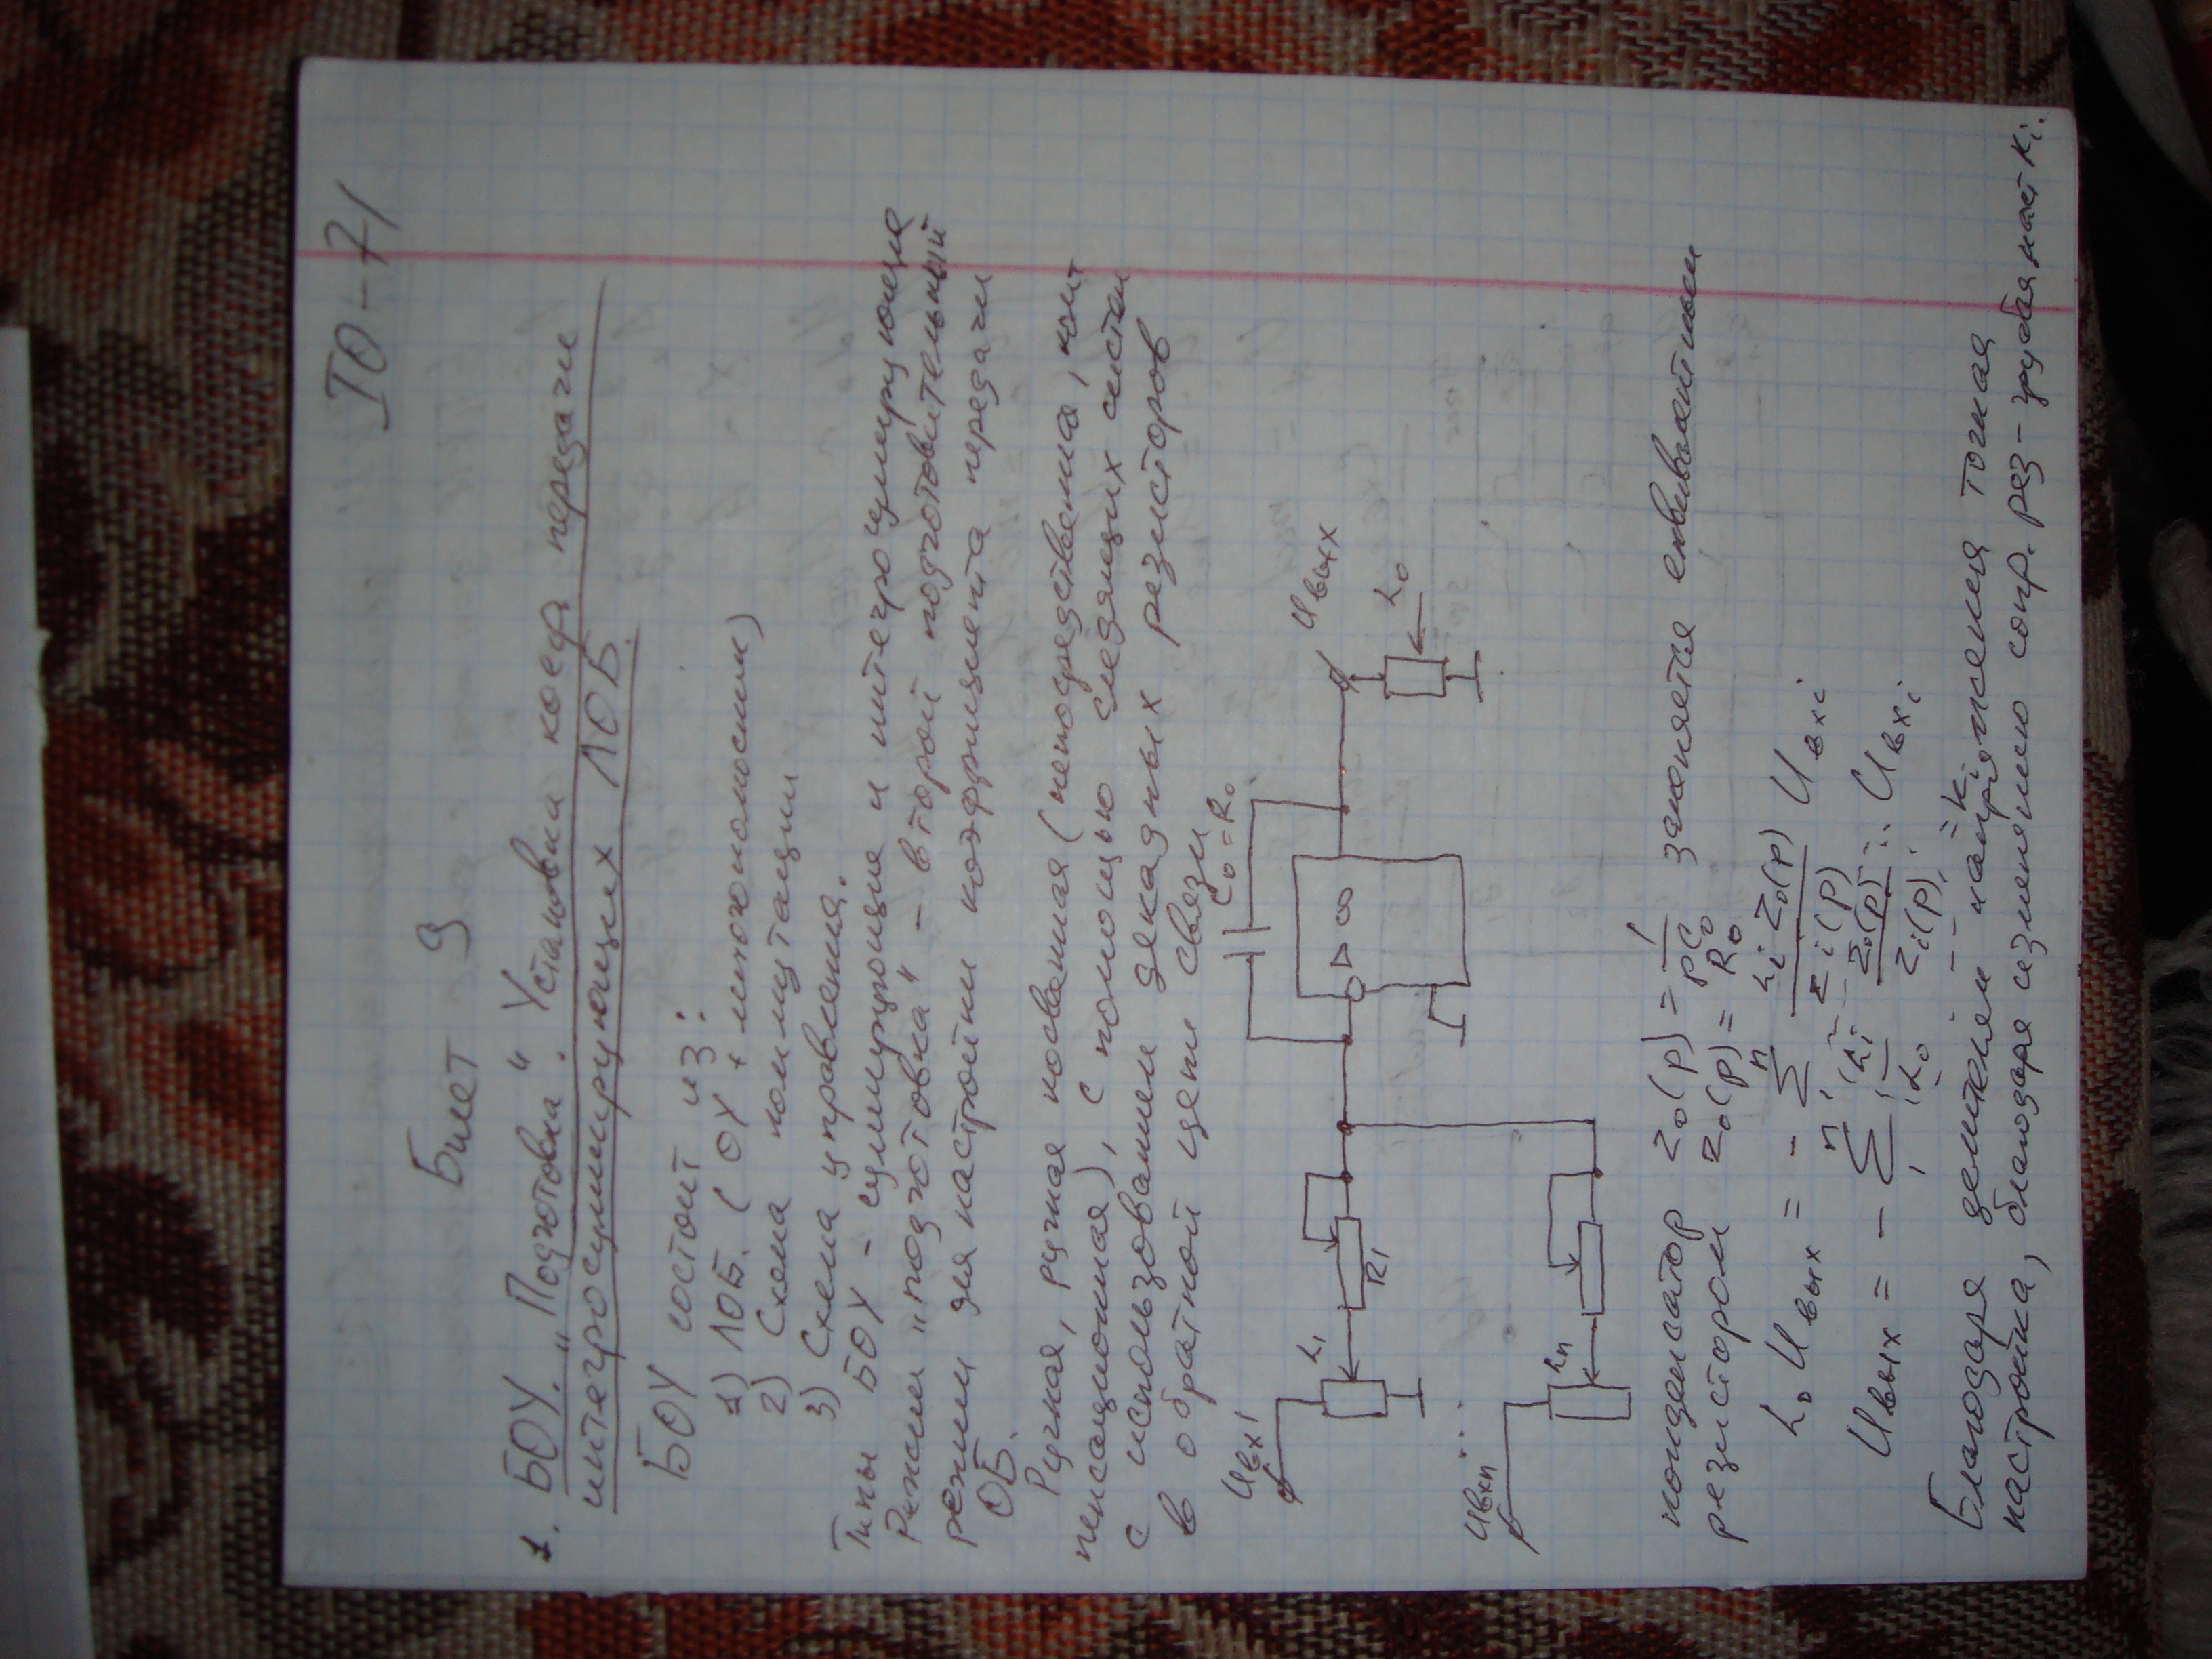 ТО-71
Билет 9
1. БОУ. "Подготовка". Установки коеф. передачи
интегросуммирующих ЛОБ.
БОУ состоит из:
1) ЛОБ. (ОУ + многополюсник)
2) Схема коммутации
3) Схема управления.
Типы БОУ - суммирующие и интегросуммирующие
Режим "подготовка" - второй подготовительный
режим для настройки коэффициента передачи
ОБ.
Ручная, ручная косвенная (непосредственная, ком
пенсационная), с помощью следящих систем
с использованием декадных резисторов
в обратной цепи связи
C₀ = R₀
Uвх1
α₁
R₁
▷ ∞
Uвых
α₀
Uвхn
αn
конденсатор Z₀(p) = 1/pC₀ заменяется еквивалентным
резистором Z₀(p) = R₀
α₀ Uвых = - Σ αi Z₀(p) / Zi(p) Uвхi
Uвых = - Σ (αi / α₀) Z₀(p) / Zi(p) Uвхi
= ki
Благодаря делителям напряжения точная
настройка, благодаря изменению сопр. рез - грубая наст ki.